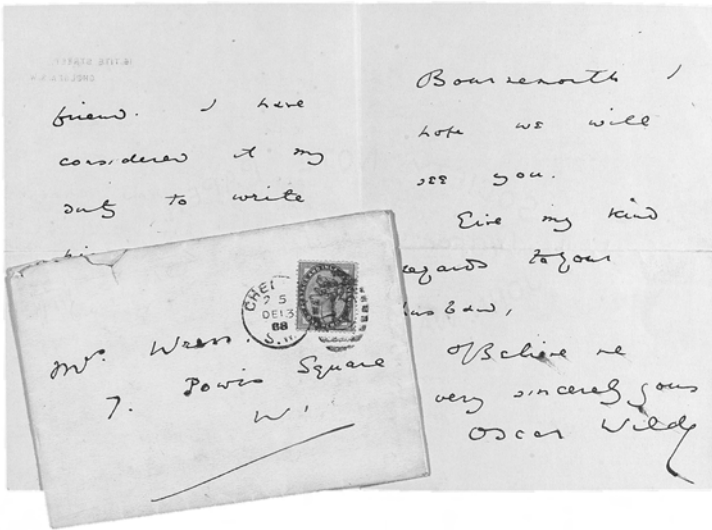 16. TITE STREET,
CHELSEA. S.W.
friend. I have
considered it my
duty to write
Bournemouth I
hope we will
see you.
Give my kind
regards to your
husband,
& Believe me
very sincerely yours
Oscar Wilde
CHEL
S.W.
DE 13
88
Mrs.
7. Powis Square
W.